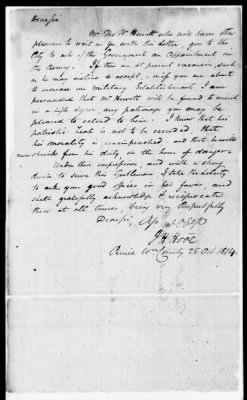 Dear Sir
Mr. Thos. W. Hewitt who will have the
pleasure to wait on you with this letter, goes to the
City to ask of the Government an Appointment in
the Army. If there are at present vacancies such
as he may incline to accept, or if you are about
to increase our Military Establishment I am
persuaded that Mr. Hewitt will be found to merit
in a high degree any patronage you may be
pleased to extend to him. I know that his
patriotic zeal is not to be exceeded that
his morality is unimpeached, and that he will
never shrink from his duty in the hour of danger.
Under these impressions and with a strong
desire to serve this Gentleman I take the liberty
to ask your good offices in his favor and
shall gratefully acknowledge & reciprocate
them at all times, being very Respectfully
Dear Sir
J H Hooe
Prince Wm County 25 Oct 1814